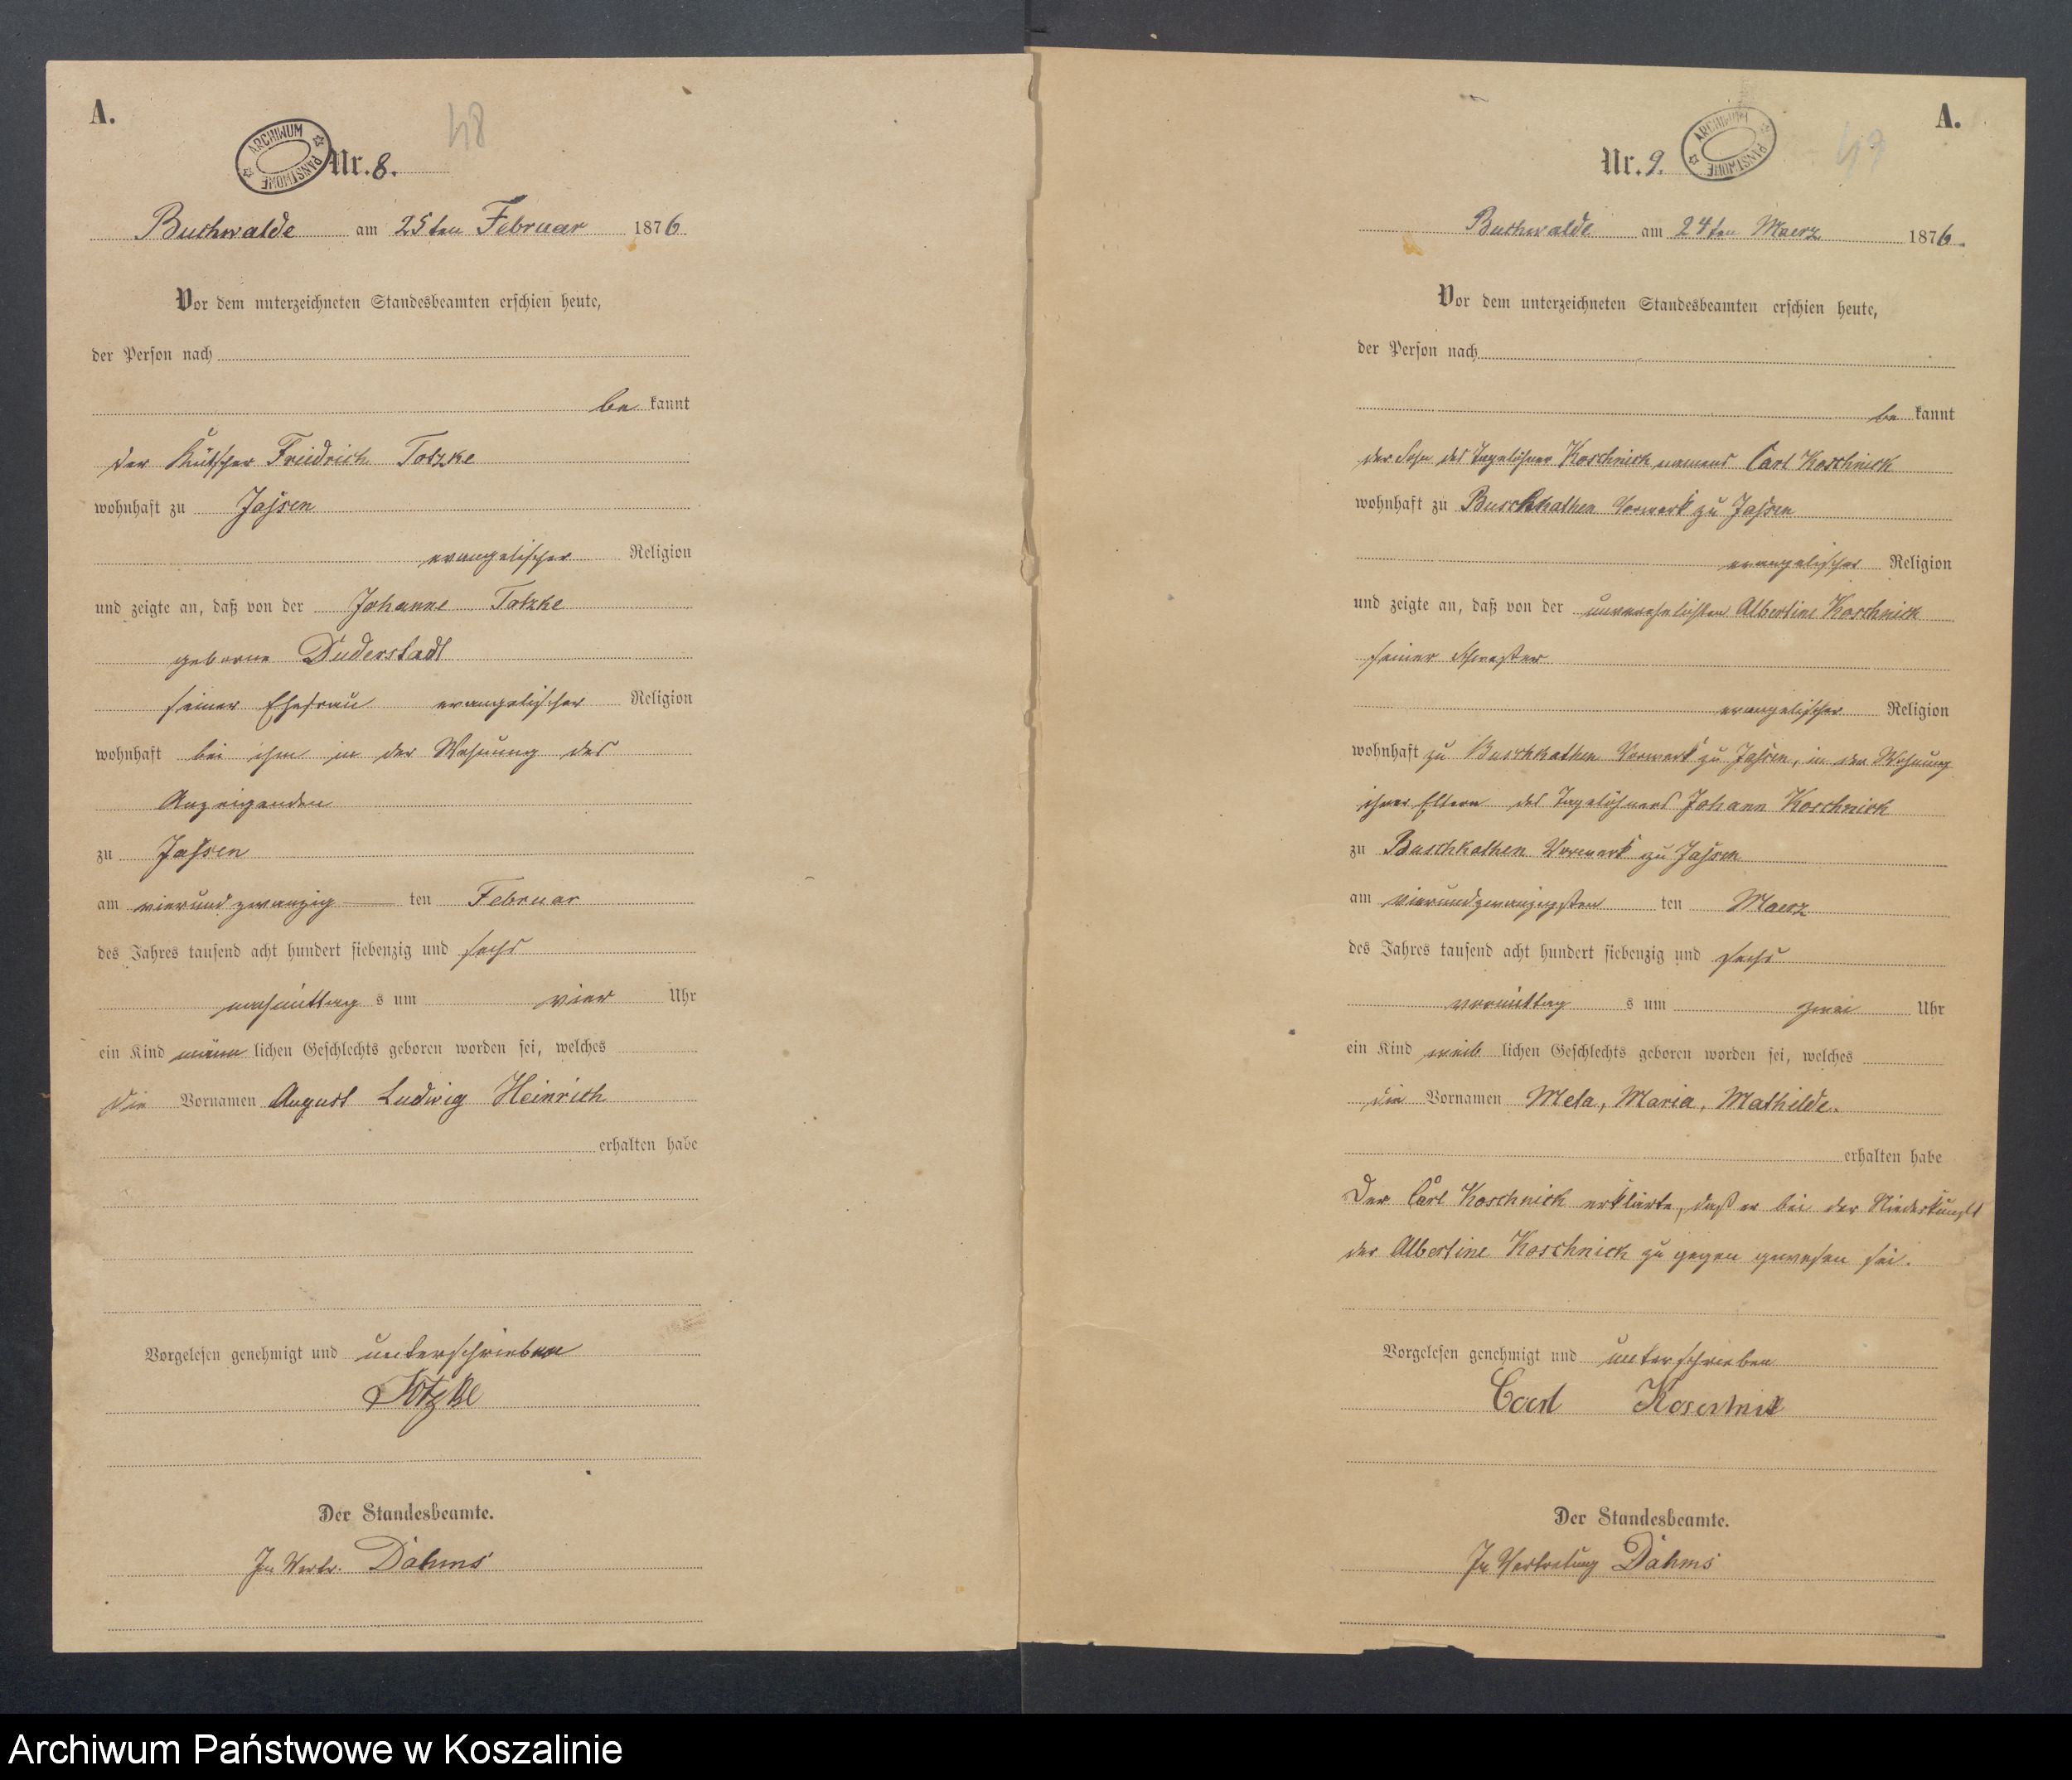 A.
ARCHIWUM PAŃSTWOWE
48
Nr. 8.
Buchwalde am 25ten Februar 1876
Vor dem unterzeichneten Standesbeamten erschien heute,
der Person nach
be kannt
der Kutscher Friedrich Totzke
wohnhaft zu Jassen
evangelischer Religion
und zeigte an, daß von der Johanne Totzke
geborne Duderstadt
seiner Ehefrau evangelischer Religion
wohnhaft bei ihm in der Wohnung des
Anzeigenden
zu Jassen
am vierundzwanzig ten Februar
des Jahres tausend acht hundert siebenzig und sechs
nachmittag s um vier Uhr
ein Kind männ lichen Geschlechts geboren worden sei, welches
die Vornamen August Ludwig Heinrich
erhalten habe
Vorgelesen genehmigt und unterschrieben
Totzke
Der Standesbeamte.
In Vertr. Dahms
A.
ARCHIWUM PAŃSTWOWE
49
Nr. 9.
Buchwalde am 24ten Maerz 1876.
Vor dem unterzeichneten Standesbeamten erschien heute,
der Person nach
be kannt
der Sohn des Tagelöhner Koschnick namens Carl Koschnick
wohnhaft zu Buschkathen Vorwerk zu Jassen
evangelischer Religion
und zeigte an, daß von der unverehelichten Albertine Koschnick
seiner Schwester
evangelischer Religion
wohnhaft zu Buschkathen Vorwerk zu Jassen, in der Wohnung
ihrer Eltern des Tagelöhners Johann Koschnick
zu Buschkathen Vorwerk zu Jassen
am vierundzwanzigsten ten Maerz
des Jahres tausend acht hundert siebenzig und sechs
vormittag s um zwei Uhr
ein Kind weib lichen Geschlechts geboren worden sei, welches
die Vornamen Meta, Maria, Mathilde.
erhalten habe
Der Carl Koschnick erklärte, daß er bei der Niederkunft
der Albertine Koschnick zu gegen gewesen sei.
Vorgelesen genehmigt und unterschrieben
Carl Koschnick
Der Standesbeamte.
In Vertretung Dahms
Archiwum Państwowe w Koszalinie